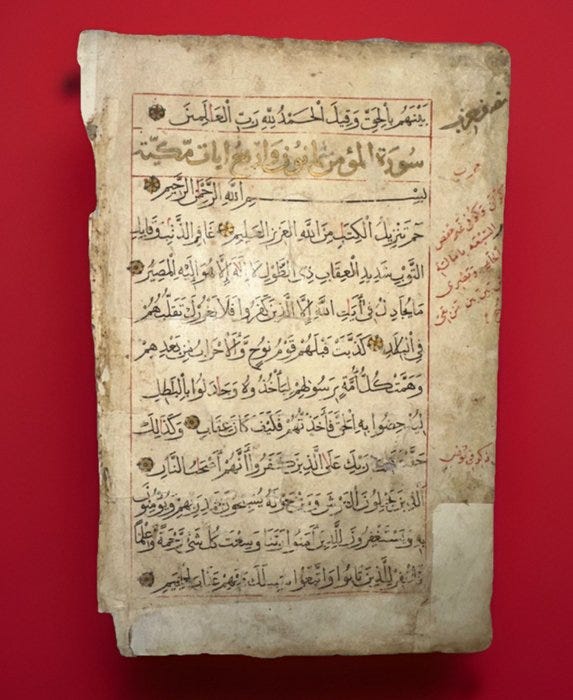 بَيْنَهُم بِالْحَقِّ وَقِيلَ الْحَمْدُ لِلَّهِ رَبِّ الْعَالَمِينَ
سورة المؤمن ثمانون واربع ايات مكية
بسم الله الرحمن الرحيم
حم تَنْزِيلُ الْكِتٰبِ مِنَ اللهِ الْعَزِيزِ الْعَلِيمِ غَافِرِ الذَّنْبِ وَقَابِلِ
التَّوْبِ شَدِيدِ الْعِقَابِ ذِي الطَّوْلِ لَا إِلٰهَ إِلَّا هُوَ إِلَيْهِ الْمَصِيرُ
مَا يُجَادِلُ فِي آيَاتِ اللهِ إِلَّا الَّذِينَ كَفَرُوا فَلَا يَغْرُرْكَ تَقَلُّبُهُمْ
فِي الْبِلَادِ كَذَّبَتْ قَبْلَهُمْ قَوْمُ نُوحٍ وَالْأَحْزَابُ مِنْ بَعْدِهِمْ
وَهَمَّتْ كُلُّ أُمَّةٍ بِرَسُولِهِمْ لِيَأْخُذُوهُ وَجَادَلُوا بِالْبَاطِلِ
لِيُدْحِضُوا بِهِ الْحَقَّ فَأَخَذْتُهُمْ فَكَيْفَ كَانَ عِقَابِ وَكَذَلِكَ
حَقَّتْ رَبِّكَ عَلَى الَّذِينَ كَفَرُوا أَنَّهُمْ أَصْحٰبُ النَّارِ
الَّذِينَ يَحْمِلُونَ الْعَرْشَ وَمَنْ حَوْلَهُ يُسَبِّحُونَ بِحَمْدِ رَبِّهِمْ وَيُؤْمِنُونَ
بِهِ وَيَسْتَغْفِرُونَ لِلَّذِينَ آمَنُوا رَبَّنَا وَسِعْتَ كُلَّ شَيْءٍ رَحْمَةً وَعِلْمًا
فَاغْفِرْ لِلَّذِينَ تَابُوا وَاتَّبَعُوا سَبِيلَكَ وَقِهِمْ عَذَابَ الْجَحِيمِ